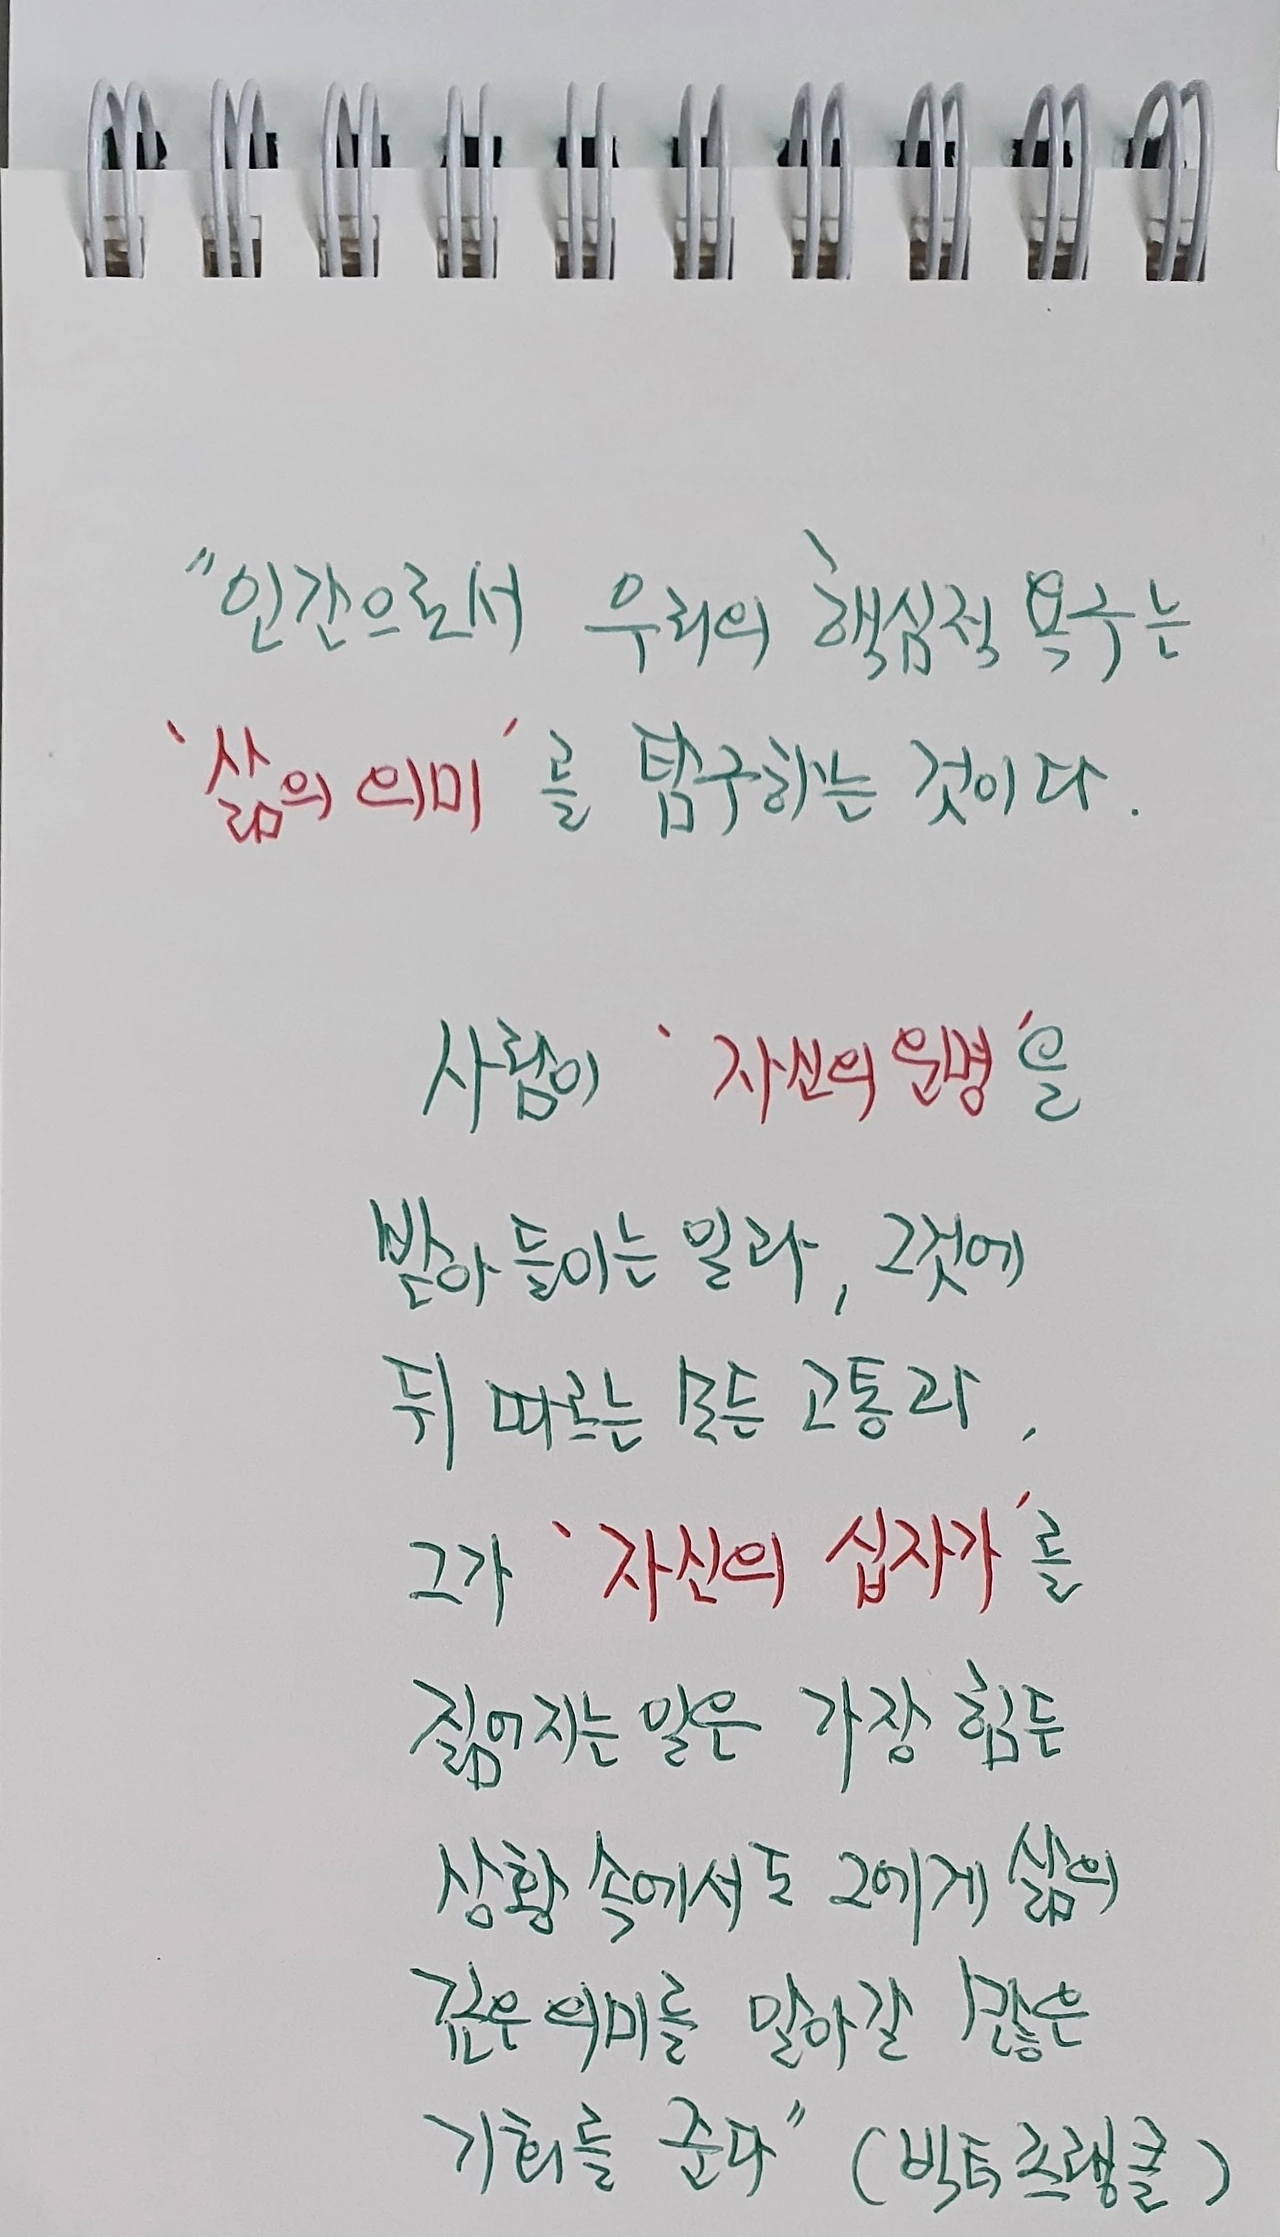 "인간으로서 우리의 핵심적 욕구는
'삶의 의미'를 탐구하는 것이다.
사람이 '자신의 운명'을
받아들이는 일과, 그것에
뒤따르는 모든 고통과,
그가 '자신의 십자가'를
짊어지는 일은 가장 힘든
상황 속에서도 그에게 삶의
깊은 의미를 말아갈 많은
기회를 준다" (빅터 프랭클)